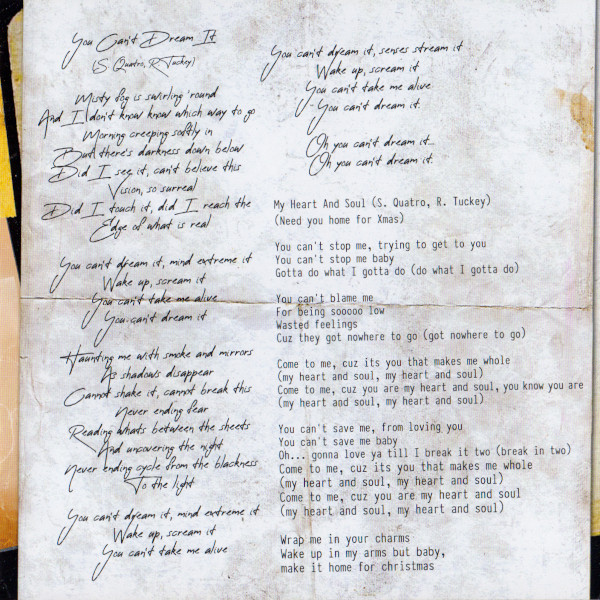 You Can't Dream It
(S. Quatro, R Tuckey)
Misty fog is swirling 'round
And I don't know know which way to go
Morning creeping softly in
But there's darkness down below
Did I see it, can't believe this
Vision, so surreal
Did I touch it, did I reach the
Edge of what is real
You can't dream it, mind extreme it
Wake up, scream it
You can't take me alive
You can't dream it
Haunting me with smoke and mirrors
As shadows disappear
Cannot shake it, cannot break this
Never ending fear
Reading whats between the sheets
And uncovering the night
Never ending cycle from the blackness
To the light
You can't dream it, mind extreme it
Wake up, scream it
You can't take me alive
You can't dream it, senses stream it
Wake up, scream it
You can't take me alive
Y-You can't dream it.
Oh you can't dream it...
Oh you can't dream it.
My Heart And Soul (S. Quatro, R. Tuckey)
(Need you home for Xmas)
You can't stop me, trying to get to you
You can't stop me baby
Gotta do what I gotta do (do what I gotta do)
You can't blame me
For being sooooo low
Wasted feelings
Cuz they got nowhere to go (got nowhere to go)
Come to me, cuz its you that makes me whole
(my heart and soul, my heart and soul)
Come to me, cuz you are my heart and soul, you know you are
(my heart and soul, my heart and soul)
You can't save me, from loving you
You can't save me baby
Oh... gonna love ya till I break it two (break in two)
Come to me, cuz its you that makes me whole
(my heart and soul, my heart and soul)
Come to me, cuz you are my heart and soul
(my heart and soul, my heart and soul)
Wrap me in your charms
Wake up in my arms but baby,
make it home for christmas